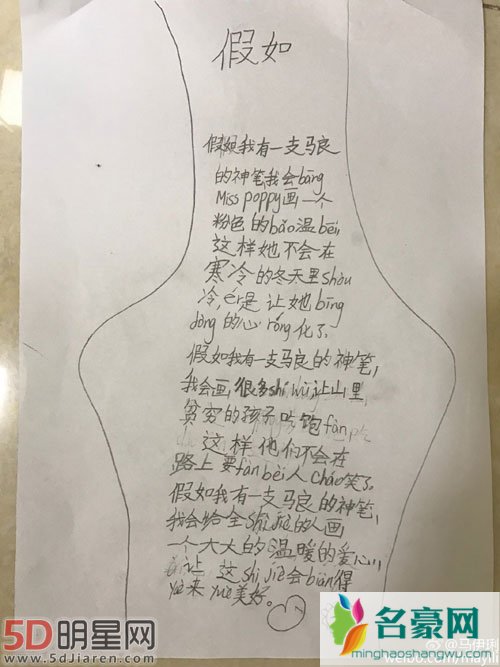 假如
假如我有一支马良
的神笔我会bāng
Miss poppy画一个
粉色的bǎo温bēi,
这样她不会在
寒冷的冬天里shòu
冷,ér是让她bīng
dòng的心róng化了。
假如我有一支马良的神笔,
我会画很多shí wù,让山里
贫穷的孩子吃饱fàn
这样他们不会在
路上要fàn bèi人cháo笑了。
假如我有一支马良的神笔,
我会给全shì jiè的人画
一个大大的温暖的爱心,
让这shì jiè会biàn得
yuè来yuè美好。
5D明星网
www.5dJiaren.com
名豪网
minghaoshangwu.com
@马伊琍